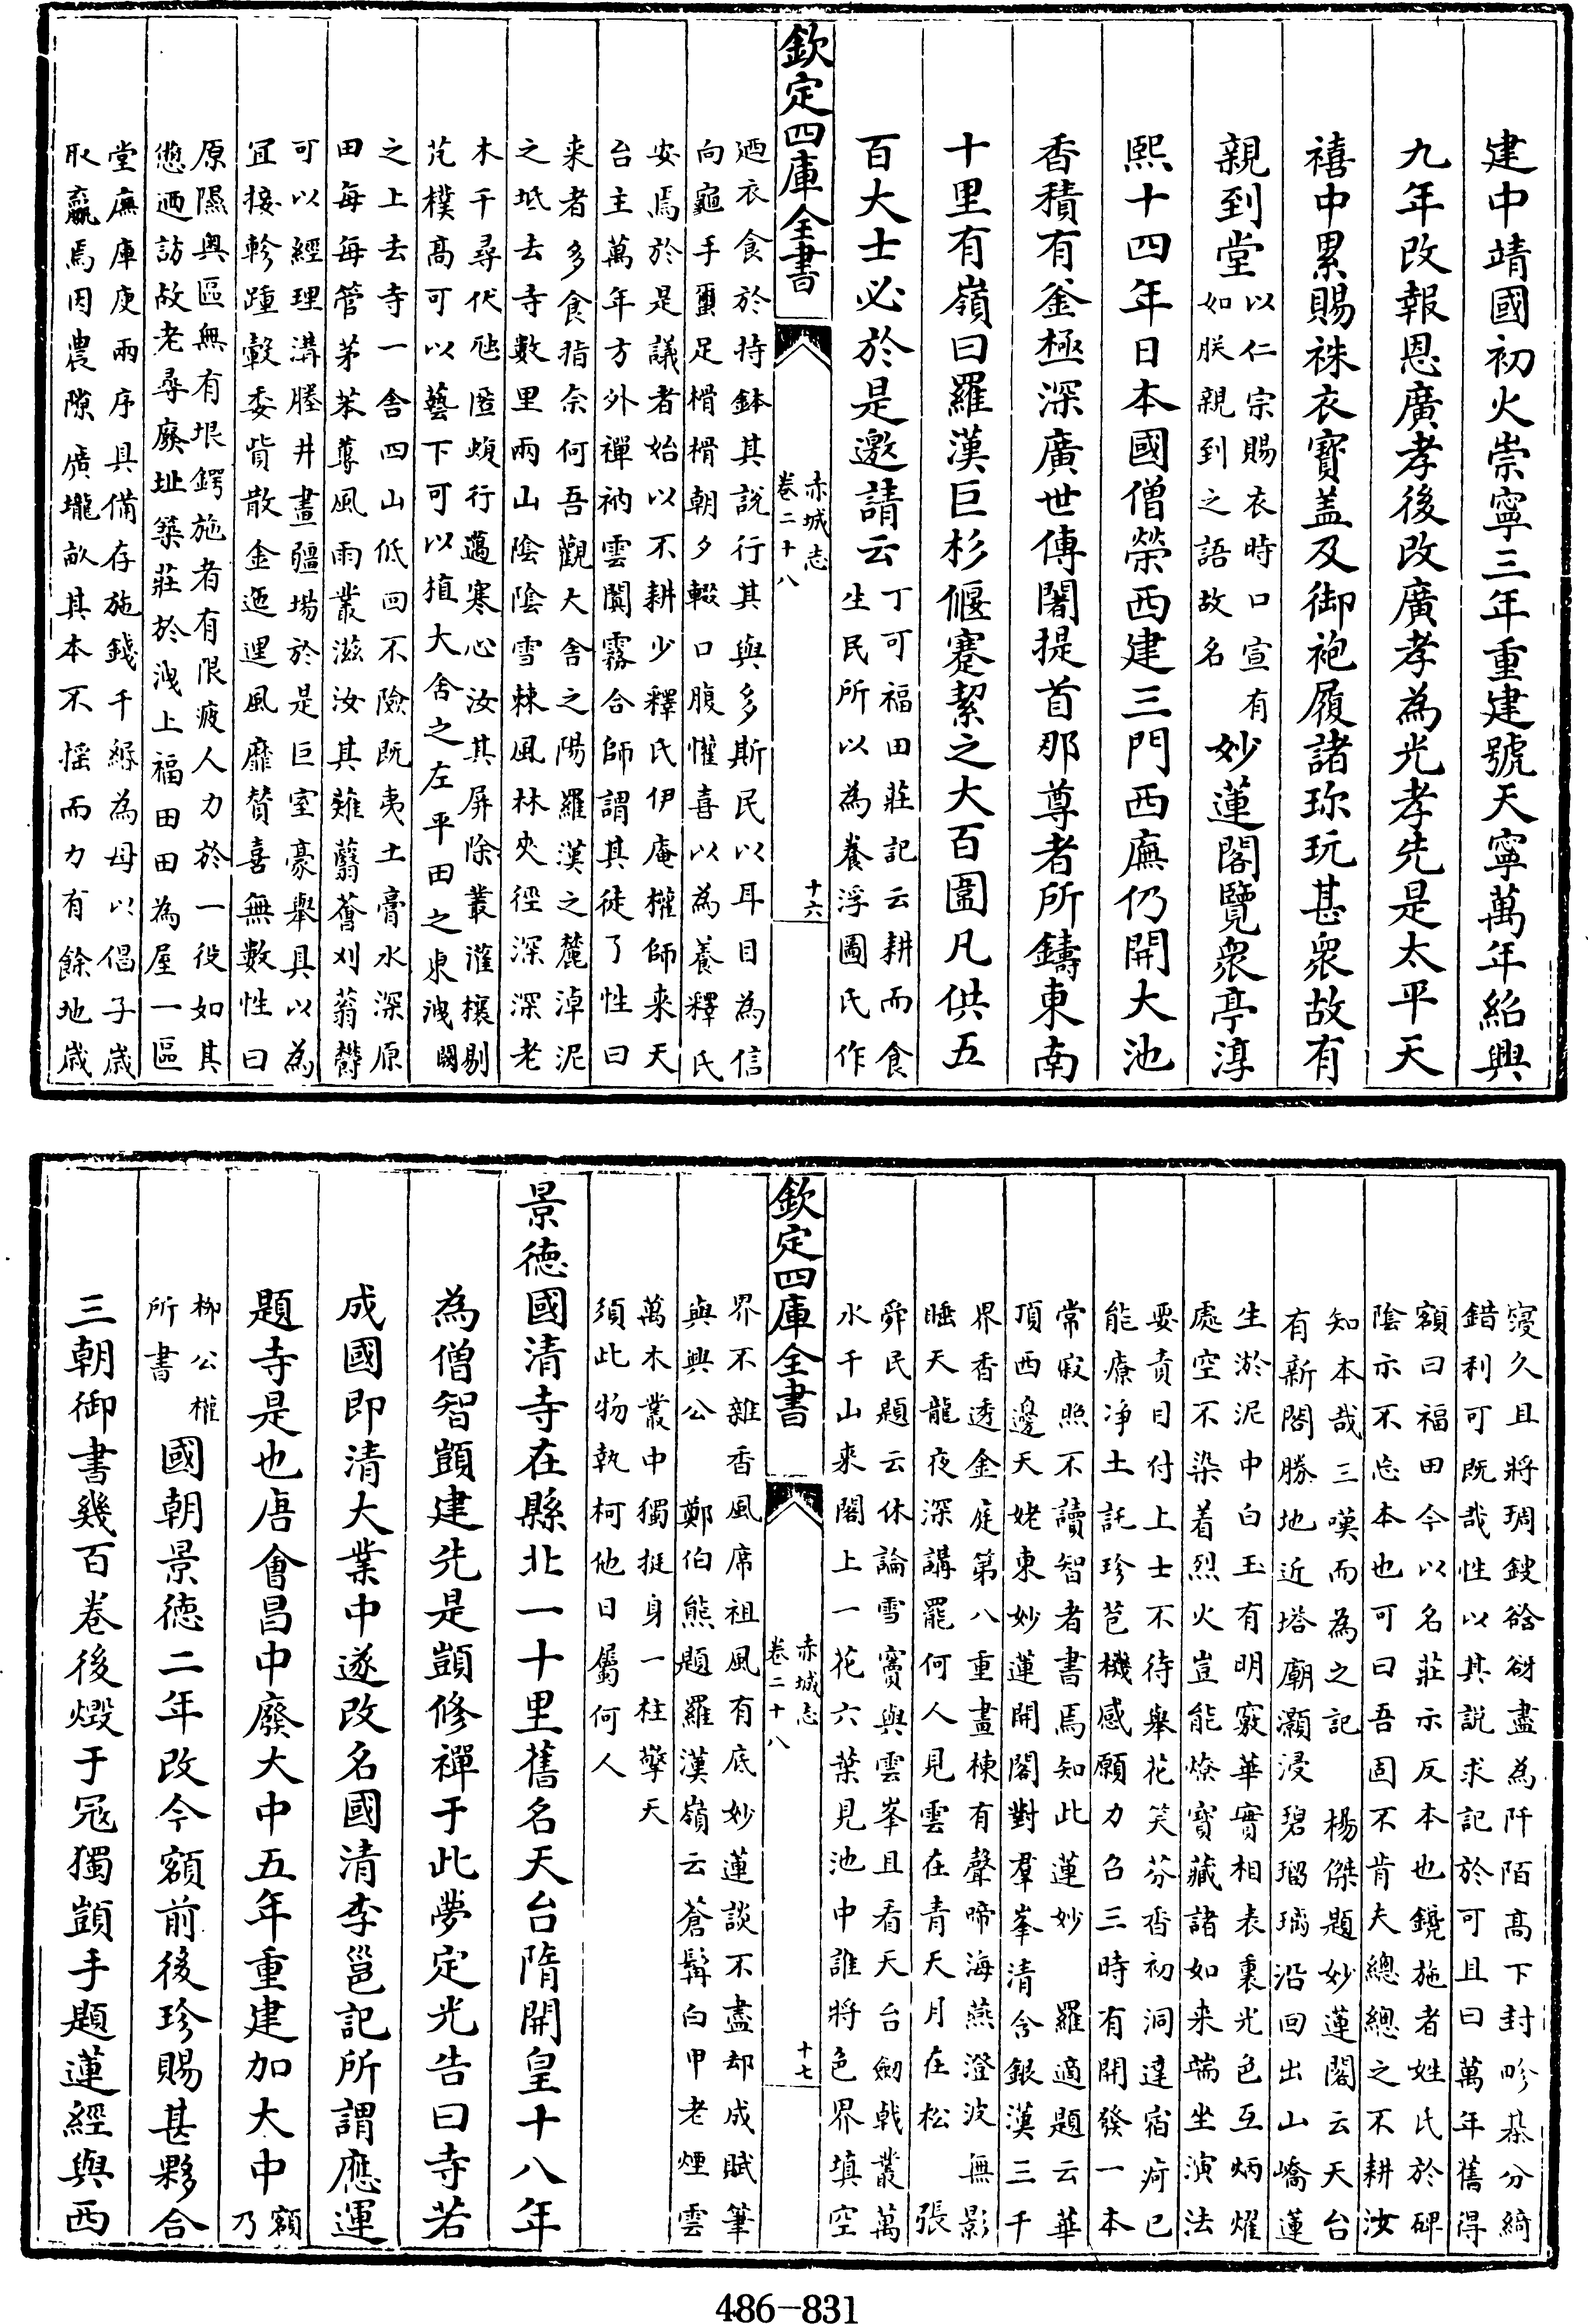 建中靖國初火崇寧三年重建號天寧萬年紹興
九年改報恩廣孝後改廣孝為光孝先是太平天
禧中累賜袾衣寶蓋及御袍履諸珎玩甚衆故有
親到堂以仁宗賜衣時口宣有如朕親到之語故名妙蓮閣覽衆亭淳
熙十四年日本國僧榮西建三門西廡仍開大池
香積有釡極深廣世傳闍提首那尊者所鑄東南
十里有嶺曰羅漢巨杉偃蹇絜之大百圍凡供五
百大士必於是邀請云丁可福田莊記云耕而食生民所以為養浮圖氏作
欽定四庫全書
赤城志
卷二十八
十六
迺衣食於持鉢其說行其與多斯民以耳目為信
向龜手璽足榾榾朝夕輟口腹懽喜以為養釋氏
安焉於是議者始以不耕少釋氏伊庵權師来天
台主萬年方外禪衲雲闐霧合師謂其徒了性曰
来者多食指奈何吾觀大舍之陽羅漢之麓淖泥
之坻去寺數里兩山陰陰雪棘風林夾徑深深老
木千尋伏虺匿蝮行邁寒心汝其屏除叢灌穰剔
芃樸髙可以藝下可以植大舍之左平田之東洩闕
之上去寺一舍四山低回不險既夷土膏水深原
田每每管茅苯蓴風雨叢滋汝其薙蘙薈刈蓊欝
可以經理溝塍井畫疆場於是巨室豪舉具以為
冝接軫踵轂委貲散金迤邐風靡賛喜無數性曰
原隰輿區無有垠鍔施者有限疲人力於一役如其
憊迺訪故老尋廢址築莊於洩上福田田為屋一區
堂廡庫庾兩序具備存施錢千緡為母以倡子歳
取贏焉因農隙廣壠畝其本不揺而力有餘地歳
寖久且將琱鋑谽谺盡為阡陌髙下封畛棊分綺
錯利可既哉性以其說求記於可且曰萬年舊得
額曰福田今以名莊示反本也鑱施者姓氏於碑
陰示不忘本也可曰吾固不肯夫總總之不耕汝
知本哉三嘆而為之記　楊傑題妙蓮閣云天台
有新閣勝地近塔廟灝浸碧瑠璃沿回出山嶠蓮
生淤泥中白玉有明竅華實相表裏光色互炳燿
處空不染着烈火豈能燎寶藏諸如来端坐演法
要責目付上士不待舉花笑芬香初洞達宿疴已
能療净土託珍苞機感願力召三時有開發一本
常寂照不讀智者書焉知此蓮妙　羅適題云華
頂西邊天姥東妙蓮開閣對羣峯清含銀漢三千
界香透金庭第八重畫棟有聲啼海燕澄波無影
睡天龍夜深講罷何人見雲在青天月在松　張
舜民題云休論雪竇與雲峯且看天台劒㦸叢萬
水千山来閣上一花六葉見池中誰將色界填空
欽定四庫全書
赤城志
卷二十八
十七
界不雜香風席祖風有底妙蓮談不盡却成賦筆
與興公　鄭伯熊題羅漢嶺云蒼髯白甲老煙雲
萬木叢中獨挺身一柱擎天
須此物執柯他日屬何人
景徳國清寺在縣北一十里舊名天台隋開皇十八年
為僧智顗建先是顗修禪于此夢定光告曰寺若
成國即清大業中遂改名國清李邕記所謂應運
題寺是也唐會昌中廢大中五年重建加大中額乃
柳公權所書國朝景徳二年改今額前後珍賜甚夥合
三朝御書幾百卷後燬于冦獨顗手題蓮經與西
486-831